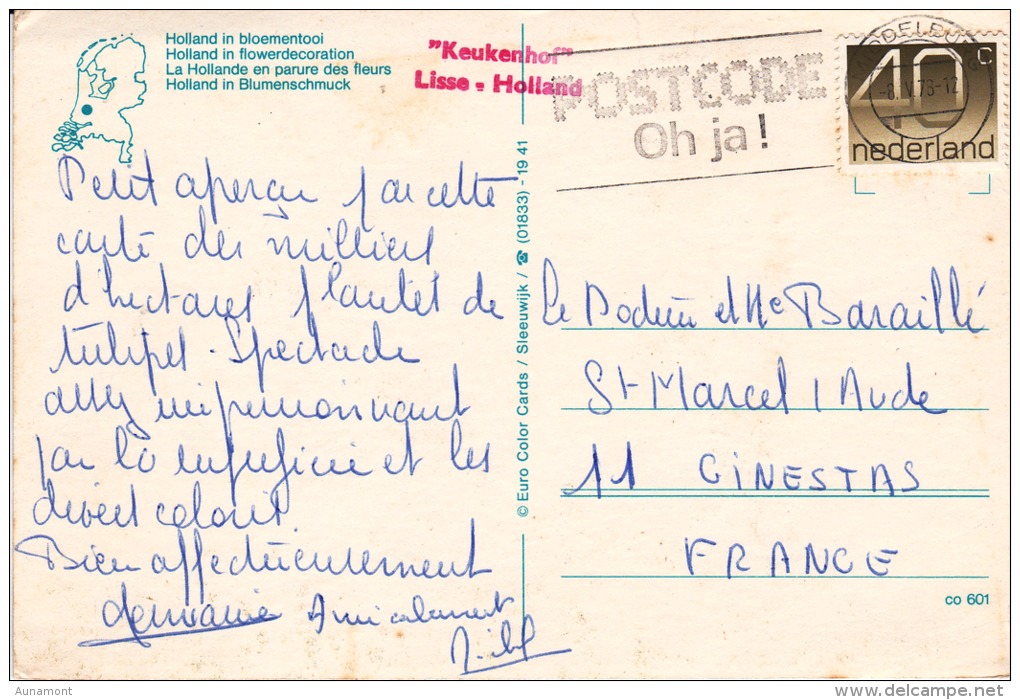 Holland in bloementooi
Holland in flowerdecoration
La Hollande en parure des fleurs
Holland in Blumenschmuck
"Keukenhof"
Lisse - Holland
POSTCODE
Oh ja!
40c
nederland
-8.V.78-12
Petit aperçu par cette
carte des milliers
d'hectares plantés de
tulipes. Spectacle
assez impressionnant
par la superficie et les
divers coloris.
Bien affectueusement
Amicalement
© Euro Color Cards / Sleeuwijk / ☎ (01833) - 19 41
Le Docteur et Me Baraillé
St-Marcel / Aude
11 GINESTAS
FRANCE
co 601
Aunamont
www.delcampe.net